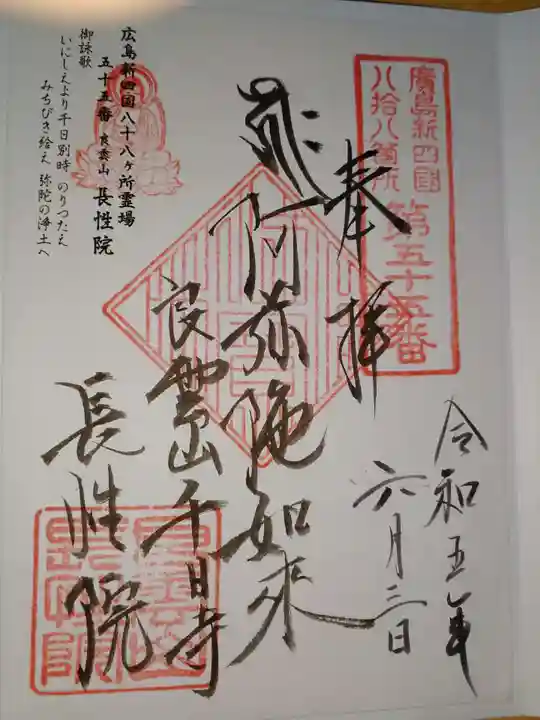 廣島新四國
八拾八箇所
第五十五番
奉拝
令和五年
六月三日
阿弥陀如来
良雲山千日寺
長性院
広島新四国八十八ヶ所霊場
五十五番 良雲山 長性院
御詠歌
いにしえより千日別時 のりつたえ
みちびき給え 弥陀の浄土へ